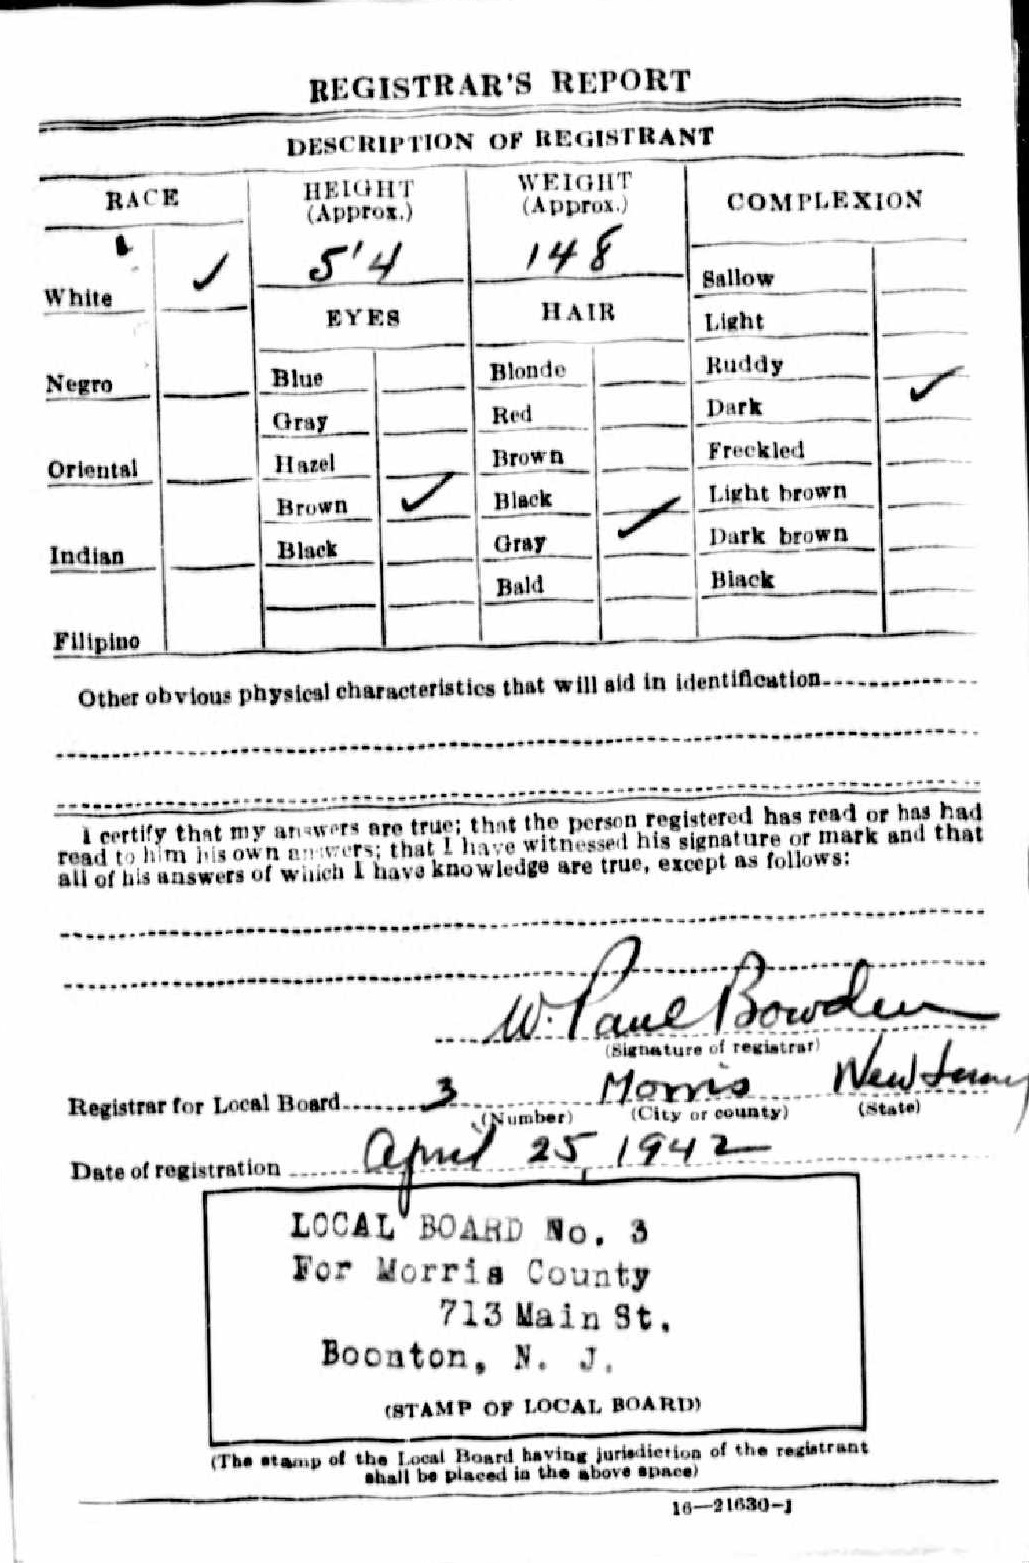 REGISTRAR'S REPORT
DESCRIPTION OF REGISTRANT
RACE
HEIGHT
(Approx.)
WEIGHT
(Approx.)
COMPLEXION
White ✓
5'4
148
EYES
HAIR
Sallow
Light
Negro
Blue
Blonde
Ruddy
Gray
Red
Dark ✓
Oriental
Hazel
Brown
Freckled
Brown ✓
Black
Light brown
Indian
Black
Gray ✓
Dark brown
Bald
Black
Filipino
Other obvious physical characteristics that will aid in identification
I certify that my answers are true; that the person registered has read or has had
read to him his own answers; that I have witnessed his signature or mark and that
all of his answers of which I have knowledge are true, except as follows:
W. Paul Bowden
(Signature of registrar)
Registrar for Local Board 3 Morris New Jersey
(Number) (City or county) (State)
Date of registration April 25, 1942
LOCAL BOARD No. 3
For Morris County
713 Main St.
Boonton, N. J.
(STAMP OF LOCAL BOARD)
(The stamp of the Local Board having jurisdiction of the registrant
shall be placed in the above space)
16—21630-1